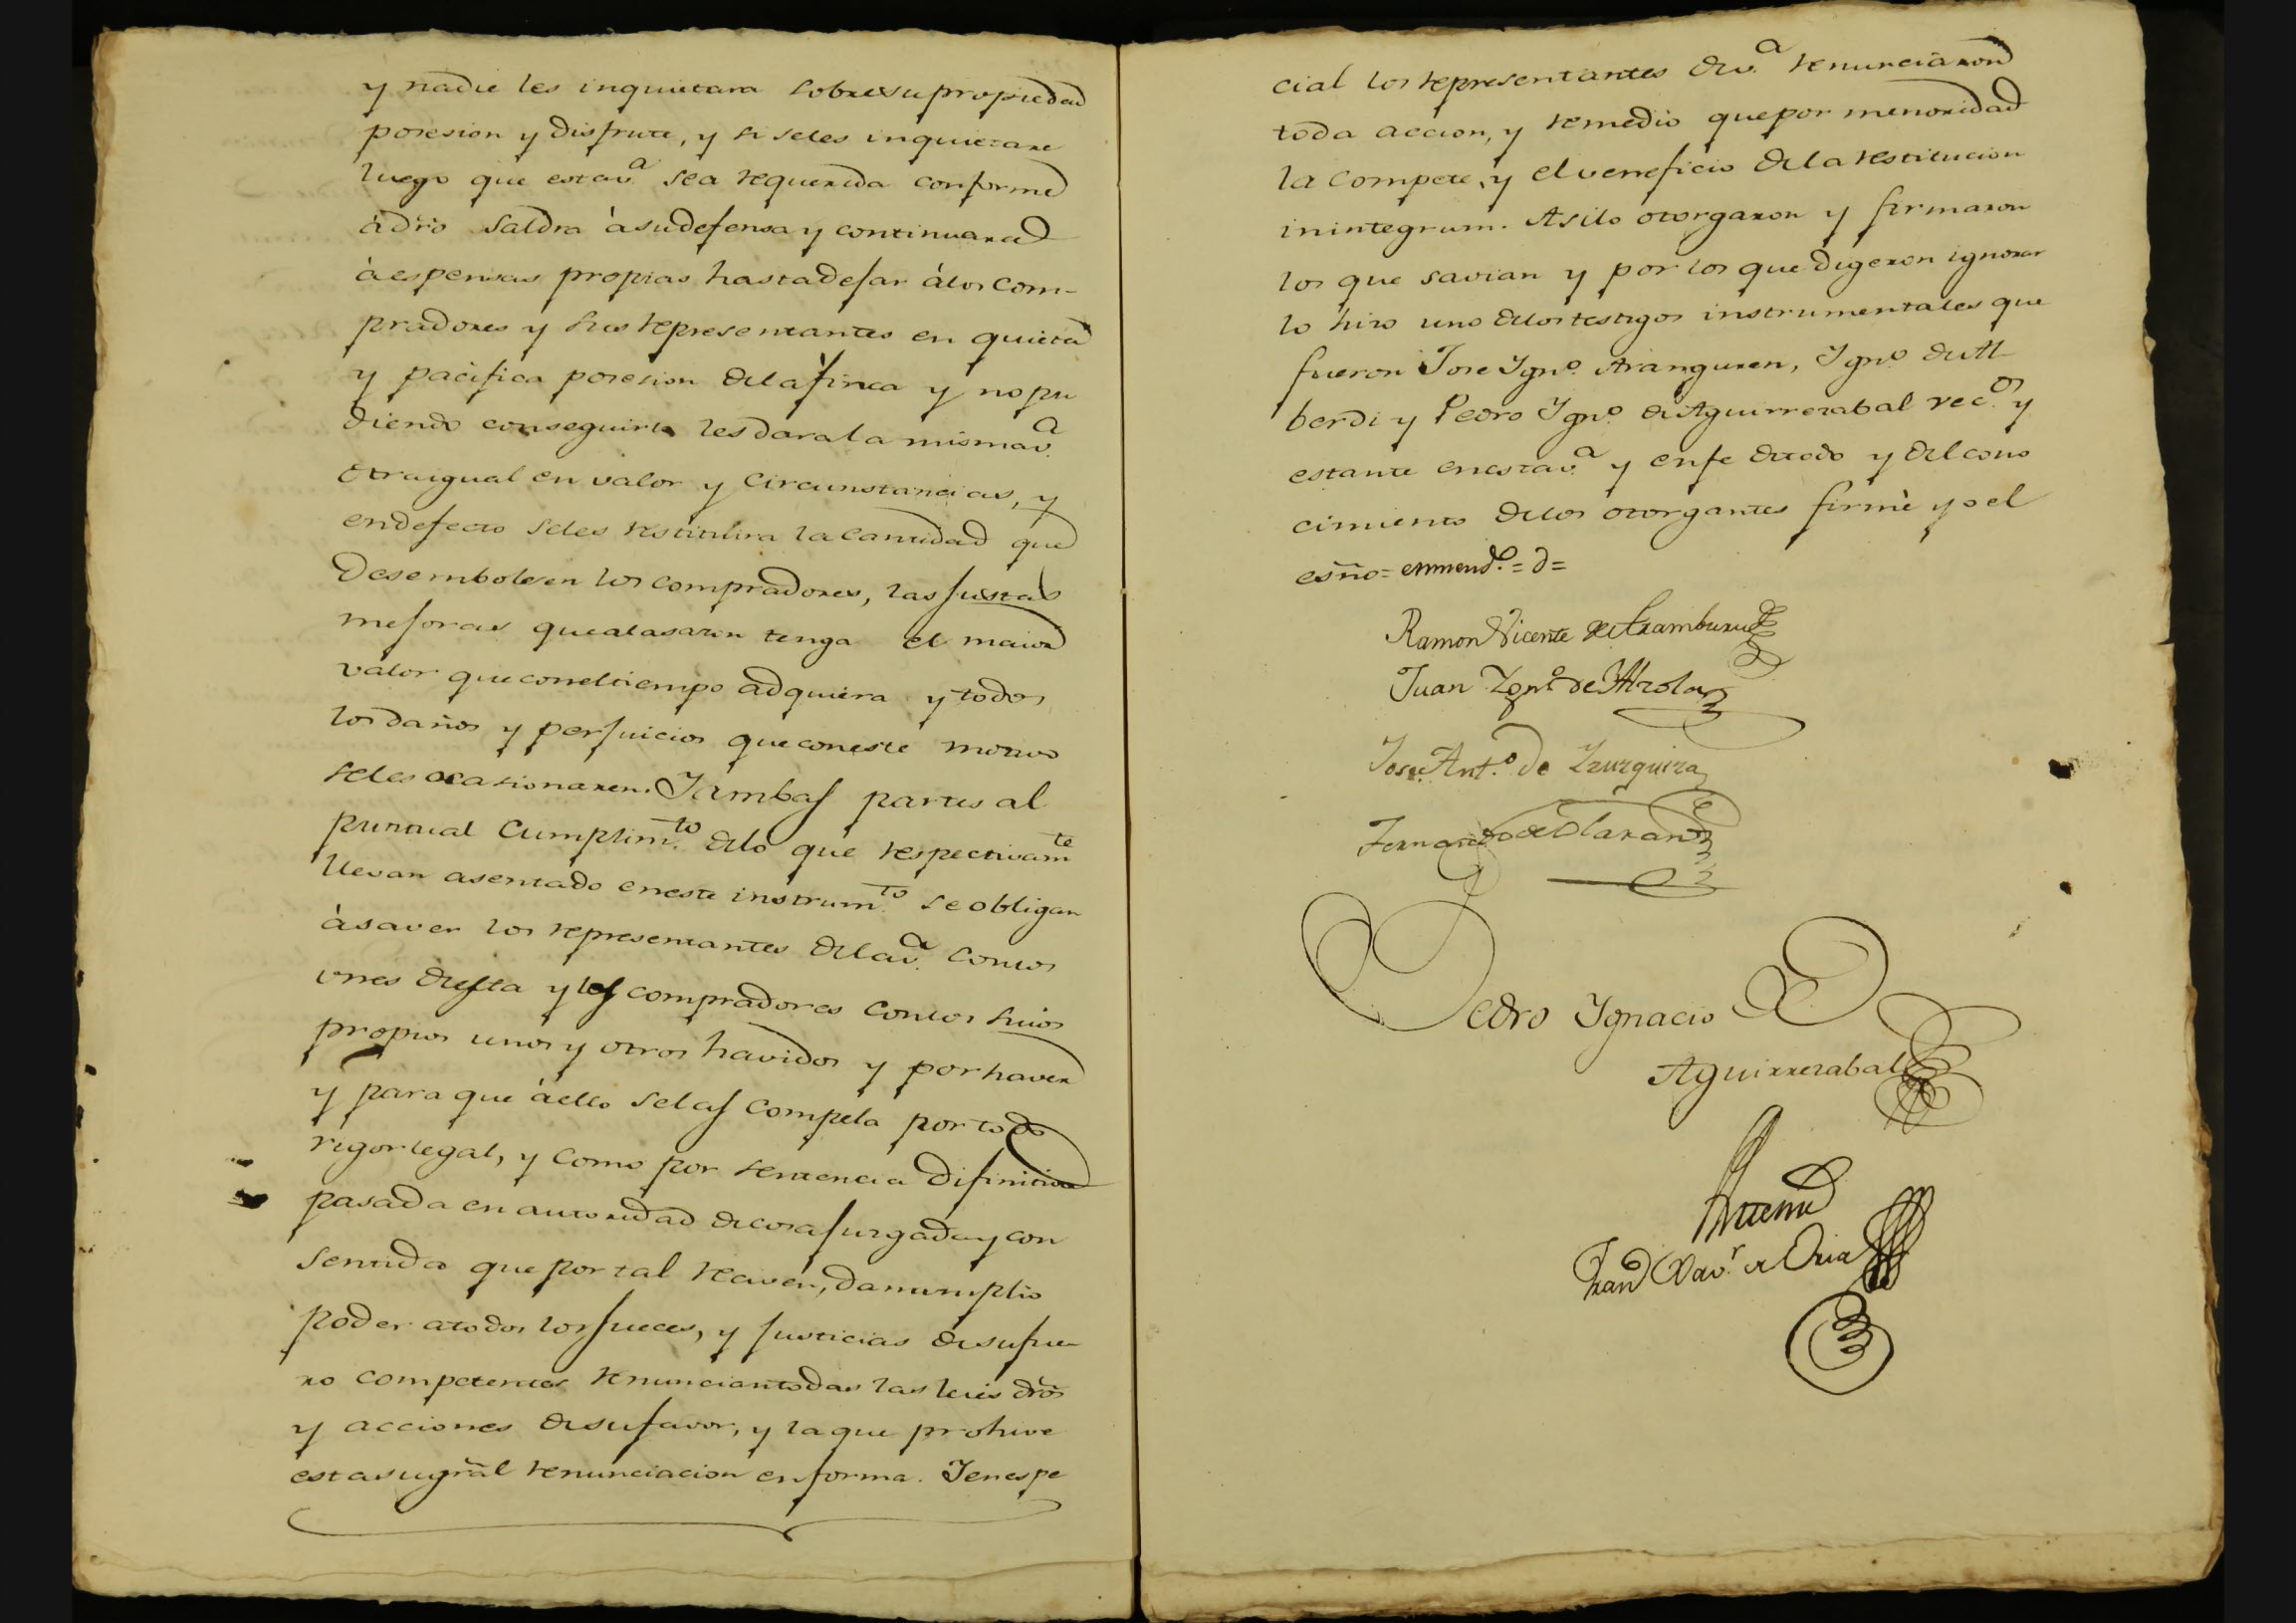 y nadie les inquietara sobre su propiedad
posesion y disfrute, y si seles inquietare
luego que esta v.ª sea requerida conforme
à dr̃o saldra à su defensa y continuara
à espensas propias hasta dejar à los com-
pradores y sus representantes en quieta
y pacifica posesion dela finca y no pu
diendo conseguirla les dara la misma v.ª
otra igual en valor y circunstancias, y
en defecto seles restituira la cantidad que
desembolsen los compradores, las justas
mejoras que ala sazon tenga el maior
valor que con el tiempo adquiera y todos
los daños y perjuicios que con este motivo
seles ocasionaren. Y ambas partes al
puntual cumplim.to delo que respectivam.te
llevan asentado en este instrum.to se obligan
à saver los representantes dela v.ª con los
vnes de esta y los compradores con los suios
propios unos y otros havidos y por haver
y para que à ello selas compela por todo
rigor legal, y como por sentencia difinitiva
pasada en autoridad de cosa juzgada y con
sentida que por tal reciven, dan amplio
poder a todos los jueces, y justicias de su fue
ro competentes renuncian todas las leies dr̃os
y acciones de su favor, y la que prohive
esta su gr̃al renunciacion en forma. Y en espe
cial los representantes de v.ª renunciaron
toda accion, y remedio que por menoridad
la compete, y el veneficio dela restitucion
in integrum. Asi lo otorgaron y firmaron
los que savian y por los que digeron ignorar
lo hizo uno delos testigos instrumentales que
fueron Jose Ygn.º Aranguren, Ygn.º de Al
berdi y Pedro Ygn.º de Aguirrezabal vec.os y
estante en esta v.ª y en fe de todo y del cono
cimiento delos otorgantes firmè yo el
esño = enmend.º = d =
Ramon Vicente de Aramburu
Juan Ygn.º de Alzola
Jose Ant.º de Yzurquiza
Fernando de Olaran
Pedro Ignacio D
Aguirrezabal
Antemi
Fran.co Xav.r de Oria